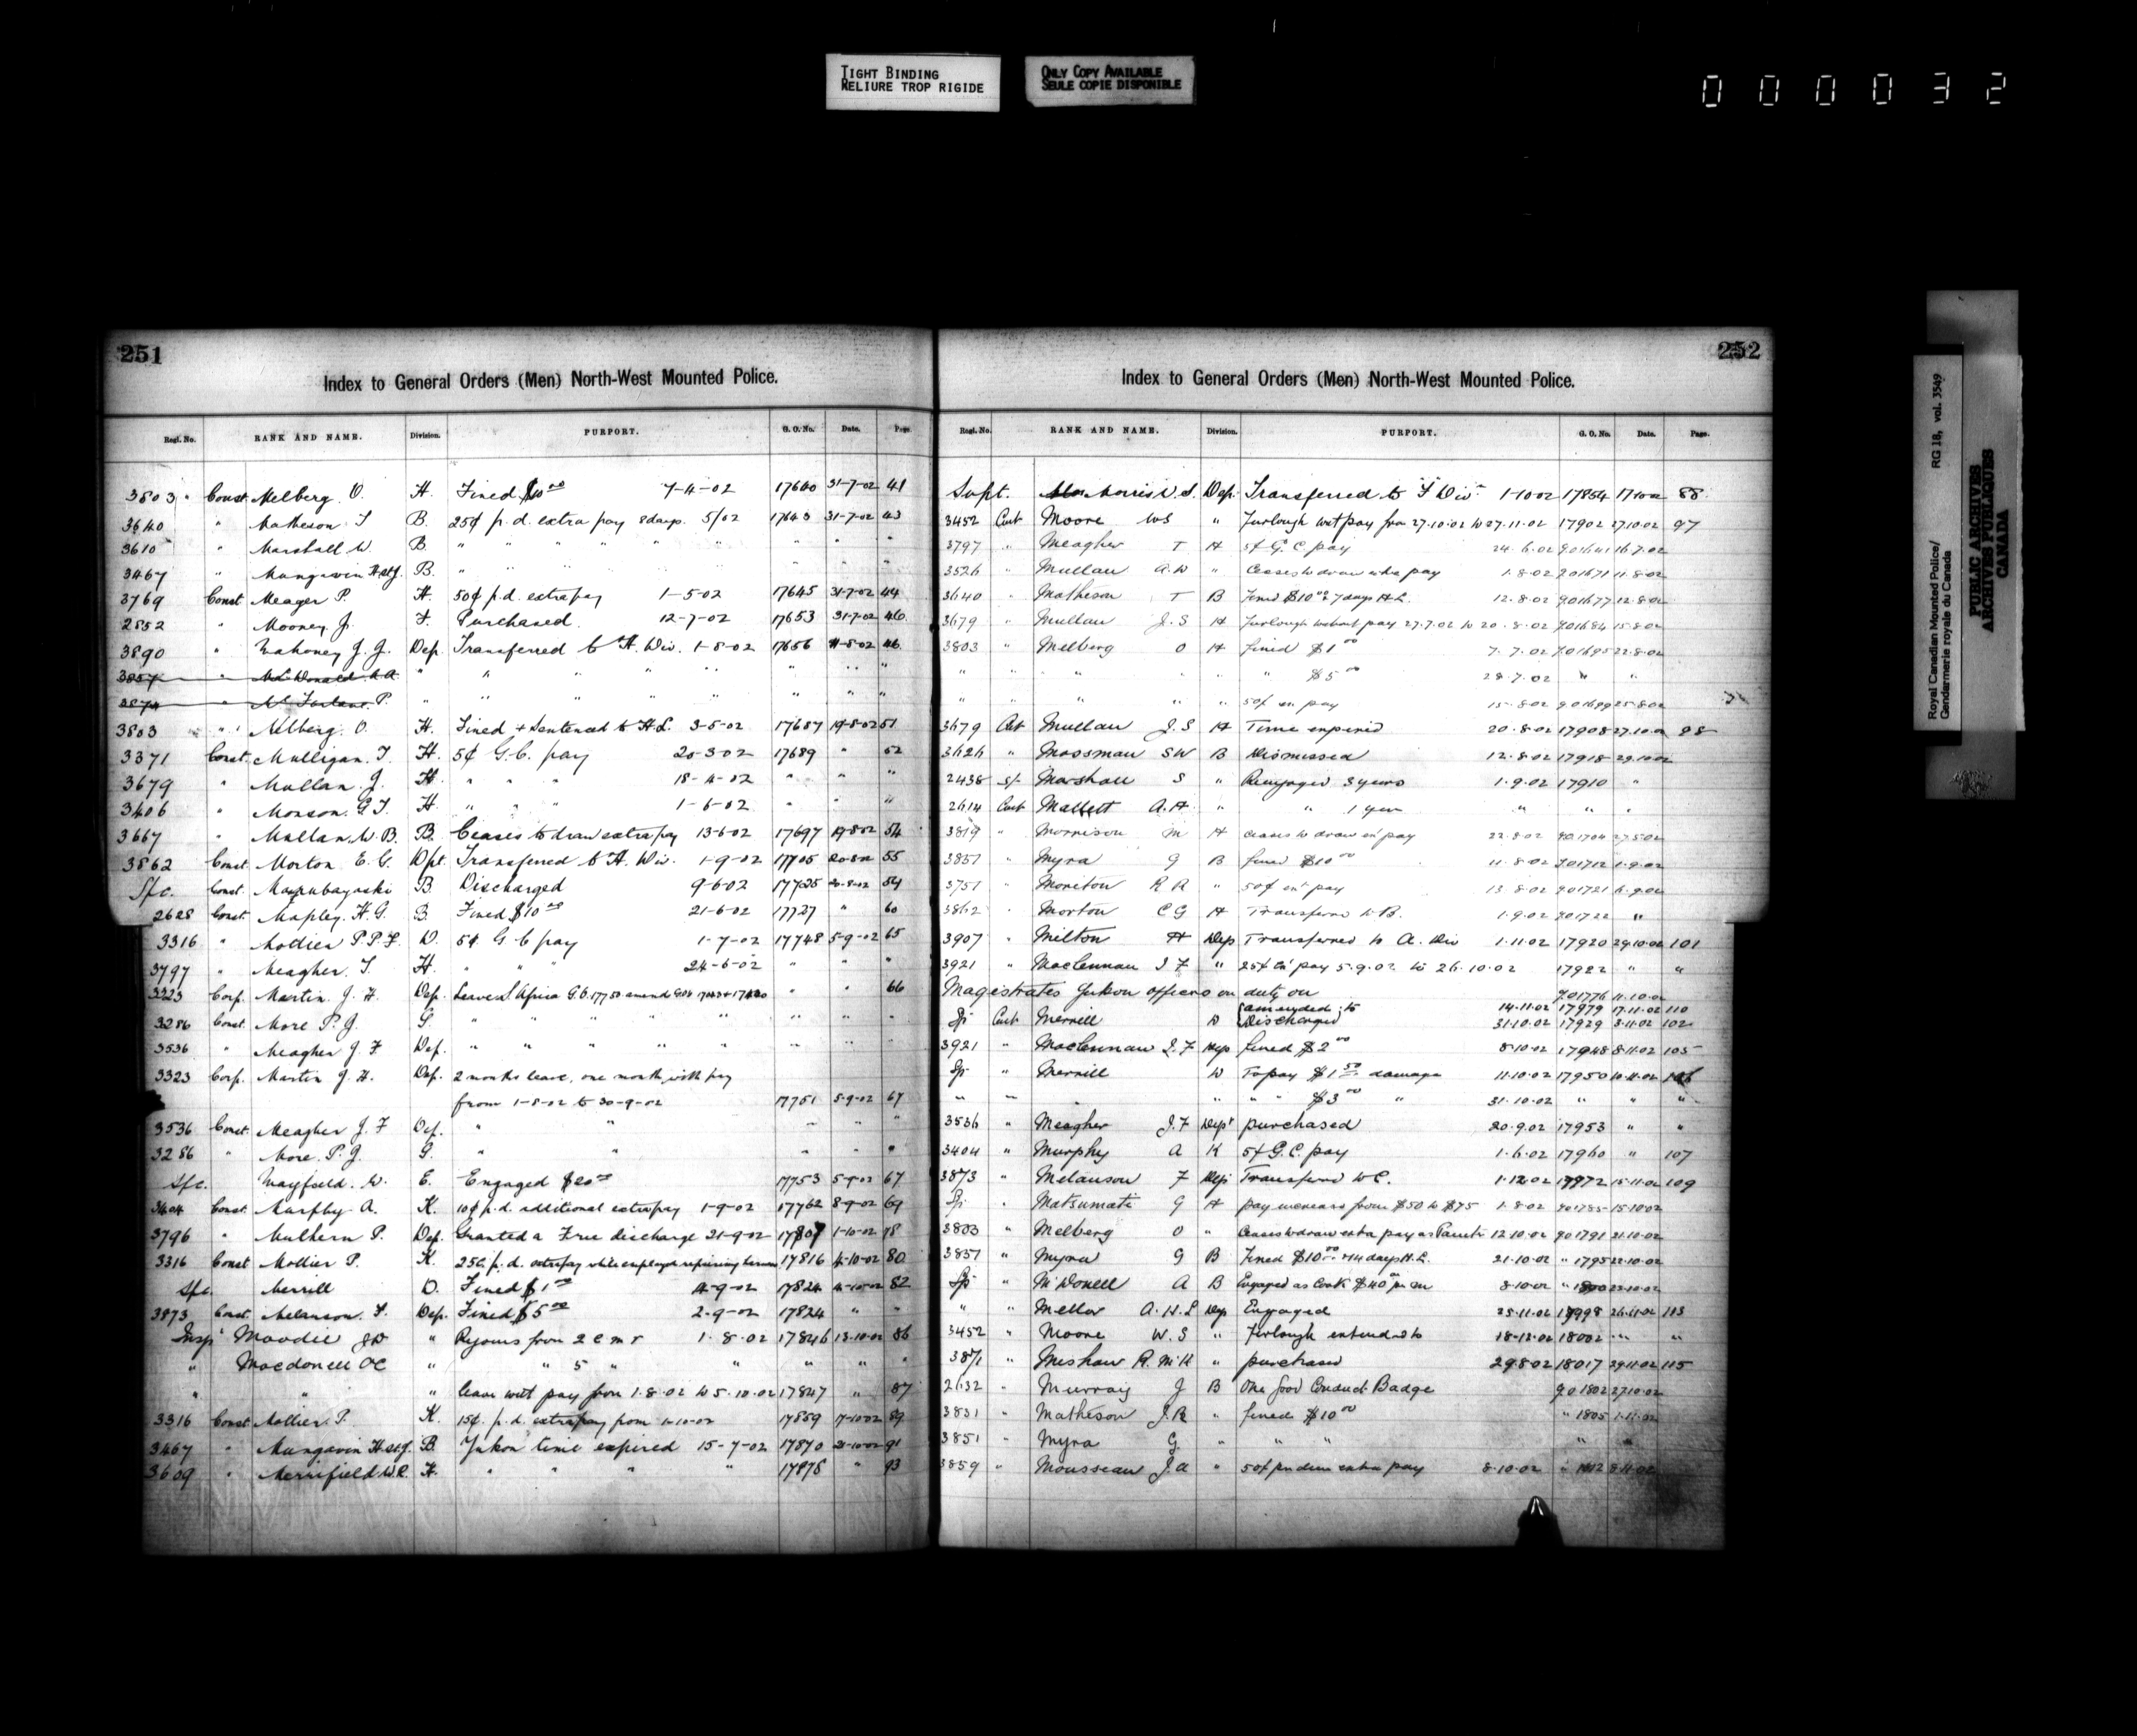 TIGHT BINDING
RELIURE TROP RIGIDE
ONLY COPY AVAILABLE
SEULE COPIE DISPONIBLE
000032
251
Index to General Orders (Men) North-West Mounted Police.
Regl. No. RANK AND NAME. Division. PURPORT. G. O. No. Date. Page.
3803 Const. Melberg. O. H. Fined $10 00 7-4-02 17640 31-7-02 41
3640 " Matheson. T B. 25¢ p.d. extra pay 8 days. 5/02 17643 31-7-02 43
3610 " Marshall W. B. " " " " " " " " "
3467 " Mungavin H.St.J. B. "
3769 Const. Meager P. H. 50¢ p.d. extra pay 1-5-02 17645 31-7-02 44
2852 " Mooney J. F. Purchased. 12-7-02 17653 31-7-02 46
3890 " Mahoney J. J. Dep. Transferred to H. Div. 1-8-02 17656 4-8-02 46
3857 " McDonald A.A. " " " " " " "
3874 " McFarlane. P. " " " " " "
3803 " Melberg. O. H. Fined + Sentenced to H.L. 3-5-02 17687 19-8-02 51
3371 Const. Mulligan. T. H. 5¢ G.C. pay 20-3-02 17689 " 52
3679 " Mullan. J. H. " " " 18-4-02 " " "
3406 " Monson. G.T. H. " " " 1-6-02 " " "
3667 " Mullan. W. B. B. Ceases to draw extra pay 13-6-02 17697 19-8-02 54
3862 Const. Morton. E. G. Dpt. Transferred to H. Div. 1-9-02 17705 20-8-02 55
Spc. Const. B. Discharged 9-6-02 17725
2628 Const. Mapley. H. G. B. Fined $10 00 21-6-02 17727 " 60
3316 " Mollier P.P.F. D. 5¢ G.C. pay 1-7-02 17748 5-9-02 65
3797 " Meagher. T. H. " " " 24-6-02 " " "
3323 Corp. Martin. J. H. Dep. Leave S. Africa G.O. 17750 amend G.O's " " 66
3286 Const. More P. J. G. " " " " " " "
3536 " Meagher J. F. Dep. " " " " " " "
3323 Corp. Martin J. H. Dep. 2 months leave, one month with pay
from 1-8-02 to 30-9-02 17751 5-9-02 67
3536 Const. Meagher J. F Dep. " " " " "
3286 " More. P. J. G. " " " " "
Spc. Mayfield. W. E. Engaged $20 00 17753 5-9-02 67
3404 Const. Murphy A. K. 10¢ p.d. additional extra pay 1-9-02 17762 8-9-02 69
3796 " Mulhern P. Dep. Granted a Free discharge 21-9-02 17807 1-10-02 78
3316 Const Mollier P. K. 25¢ p.d. extra pay while employed repairing harness 17816 4-10-02 80
Spc. Merrill D. Fined $1 00 4-9-02 17824 4-10-02 82
3873 Const. Melanson. F. Dep. Fined $5 00 2-9-02 17824 " "
Insp' Moodie JD " Rejoins from 2 C M R 1.8.02 17846 13-10-02 86
" Macdonell AC " " 5 " " " " "
" " " leave wet pay from 1.8.02 to 5.10.02 17847 " 87
3316 Const Mollier P. K. 15¢. p.d. extra pay from 1-10-02 17859 17-10-02 89
3467 " Mungavin H.St.J. B. Yukon time expired 15-7-02 17870 21-10-02 91
3609 " Merrifield W.R. H. " " " " 17878 " 93
252
Index to General Orders (Men) North-West Mounted Police.
Regl. No. RANK AND NAME. Division. PURPORT. G. O. No. Date. Page.
Supt. Morris W.S. Dep. Transferred to "F" Div. 1-10-02 17854 17-10-02 88
3452 Cont Moore WS " Furlough wet pay from 27.10.02 to 27.11.02 17902 27.10.02 97
3797 " Meagher T H 5¢ G.C pay 24.6.02 G.O 1641 16.7.02
3526 " Mullan A.W " Ceases to draw extra pay 1.8.02 G.O 1671 11.8.02
3640 " Matheson T B Fined $10 00 & 7 days H.L. 12.8.02 G.O 1677 12.8.02
3679 " Mullan J.S H Furlough without pay 27.7.02 to 20.8.02 G.O 1684 15.8.02
3803 " Melberg O H fined $1 00 7.7.02 G.O 1695 22.8.02
" " " " " " $5 00 28.7.02 " "
" " " " " 50¢ ex pay 15.8.02 G.O 1699 25.8.02
3679 Cst Mullan J.S H Time expired 20.8.02 17908 27.10.02 98
3626 " Mossman SW B Dismissed 12.8.02 17918 29.10.02
2438 S/- Marshall S " Reengaged 3 years 1.9.02 17910 "
2614 Const Mallett A.H. " " 1 year " " "
3819 " Morrison M H ceases to draw ex pay 22.8.02 G.O 1704 27.8.02
3851 " Myra G B fined $10 00 11.8.02 G.O 1712 1.9.02
3751 " Moreton R R " 50¢ ex pay 13.8.02 G.O 1721 6.9.02
3862 " Morton E G H Transferred to B. 1.9.02 G.O 1722 "
3907 " Milton H Dep Transferred to A. Div 1.11.02 17920 29.10.02 101
3921 " Maclennan J F " 25¢ ex pay 5.9.02 to 26.10.02 17922 " "
Magistrates Yukon officers on duty on G.O 1776 11.10.02
amended to 14.11.02 17979 17.11.02 110
Sp Cont Merrill D Discharged 31.10.02 17929 3.11.02 102
3921 " Maclennan J.F Dep fined $2 00 8.10.02 17948 8.11.02 105
Sp " Merrill D To pay $1 50 damage 11.10.02 17950 10.11.02 106
" " " " " " $3 00 " 31.10.02 " " "
3536 " Meagher J.F Dept purchased 20.9.02 17953 " "
3404 " Murphy A K 5¢ G.C. pay 1.6.02 17960 " 107
3873 " Melanson F Dep Transferred to C. 1.12.02 17972 15.11.02 109
Sp " Matsumati G H pay increase from $50 to $75 1.8.02 G.O 1785 15.10.02
3803 " Melberg O " Ceases to draw extra pay as 12.10.02 G.O 1791 21.10.02
3851 " Myra G B Fined $10 00 & 14 days H.L. 21.10.02 " 1795 22.10.02
Sp " McDonell A B Engaged as Cook $40 00 per m 8.10.02 " 1800
" " Mellor A.H.L Dep Engaged 25.11.02 17998 26.11.02 113
3452 " Moore W.S " Furlough extended to 18.12.02 18002 " "
3871 " Meshaw R. McK " purchased 29.8.02 18017 29.11.02 115
2632 " Murray J B One Good Conduct Badge G.O 1802 27.10.02
3831 " Matheson J.R " fined $10 00 " 1805 1.11.02
3851 " Myra G. " " " " "
3859 " Mousseau J.A " 50¢ per diem extra pay 8.10.02 " 1812 8.11.02
Royal Canadian Mounted Police/ RG 18, vol. 3549
Gendarmerie royale du Canada
PUBLIC ARCHIVES
ARCHIVES PUBLIQUES
CANADA